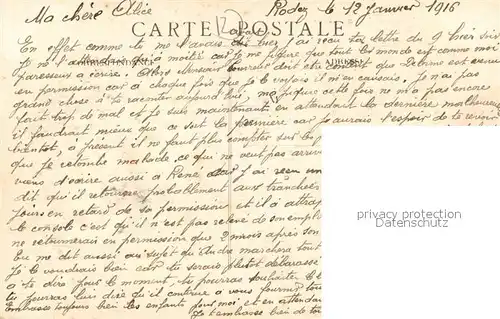 Ma chère Alice Rodez le 12 Janvier 1916
CARTE POSTALE
En effet comme tu me l'avais dit hier j'ai reçu ta lettre du 9 hier soir
Je ne m'attendais qu'à moitié car je me figure que tout le monde est comme moi
ADRESSE
paresseux à écrire. est venu
en permission car à chaque fois que tu m'en causais. Je n'ai pas
grand chose à te raconter aujourd'hui, ma piqure cette fois ne m'a pas encore
fait trop de mal et je suis maintenant en attendant la dernière
il faudrait mieux que ce soit la première car j'aurais l'espoir de te revoir
bientôt, à présent il ne faut plus compter sur les
que je retombe malade, ce que ne veut pas
viens d'écrire aussi à René dont j'ai reçu un
dit qu'il retourne probablement aux tranchées
jours en retard de sa permission et il a
le console c'est qu'il n'est pas relevé de son emplo
ne retournerai en permission que 2 mois après son
tu me dit aussi au sujet d'André marchera tout
Je le voudrais bien car tu serais plutôt débarassé
à te dire pour le moment, tu pourras souhaiter
tu pourras lui dire qu'il continue à vous
Embrasse toujours bien les enfants pour moi, et en attendan
Je t'embrasse bien de
privacy protection
oldthing.de